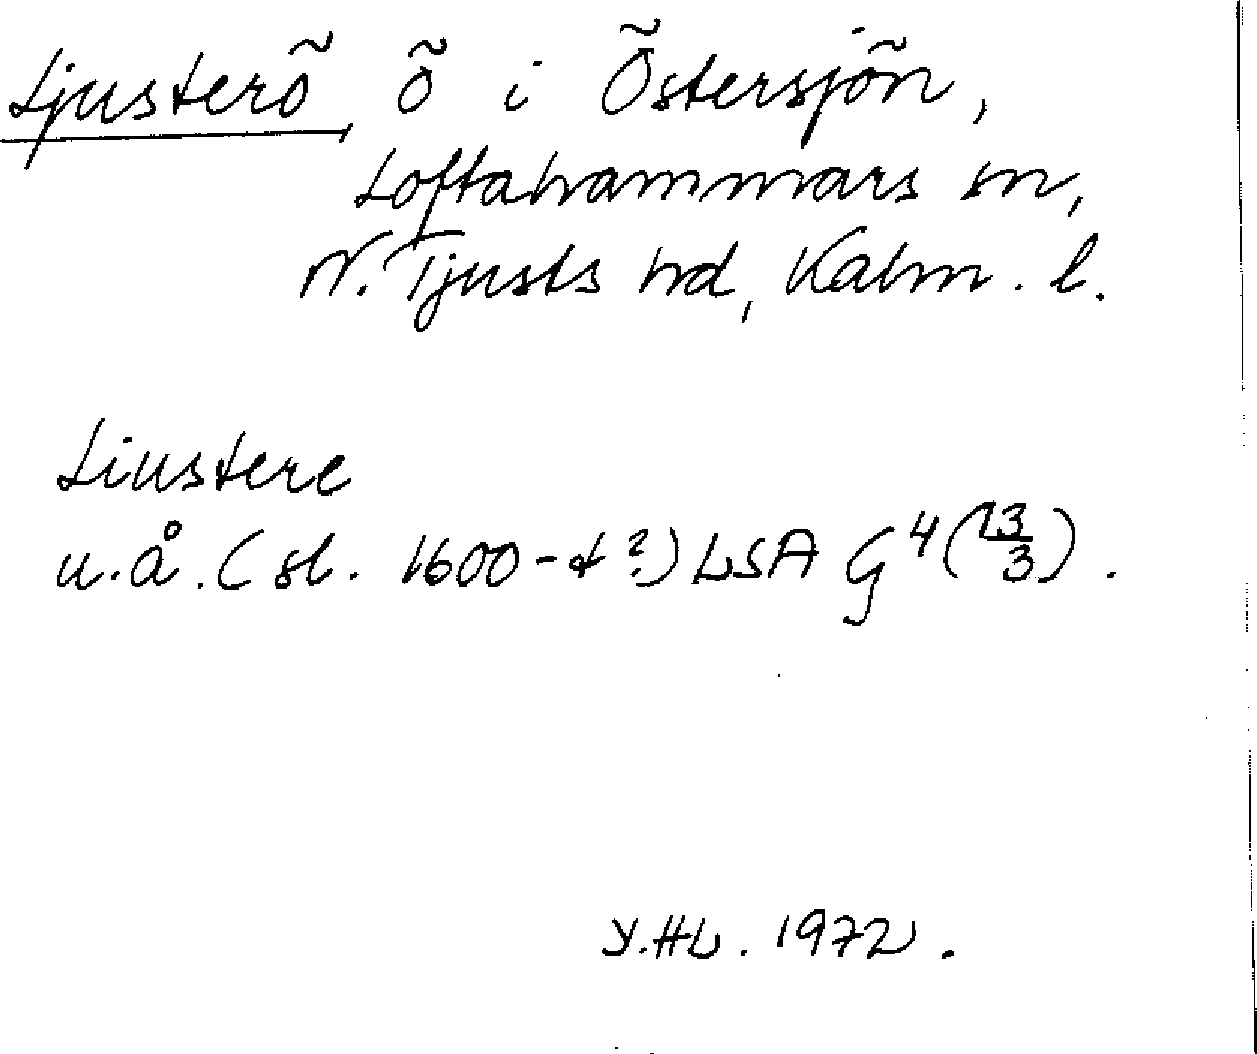 Ljusterö, ö i Östersjön,
Loftahammars sn,
N. Tjusts hd, Kalm. l.
Liustere
u.å. (sl. 1600-t?) LSA G4 (13/3).
Y.HL. 1972.